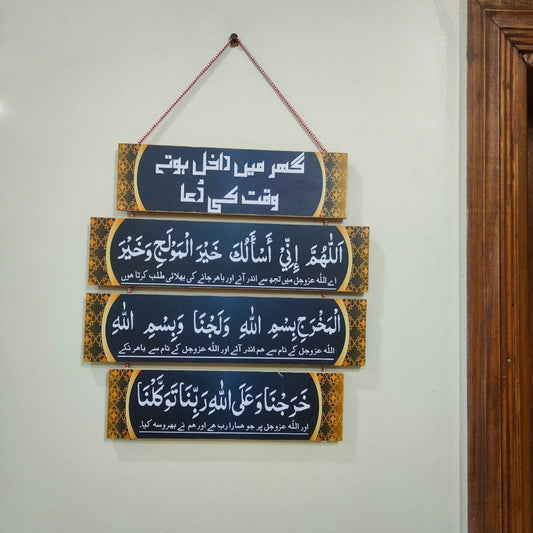 گھر میں داخل ہوتے
وقت کی دُعا
اَللّٰهُمَّ اِنِّیْ أَسْأَلُكَ خَيْرَ الْمَوْلَجِ وَخَيْرَ
اے اللّٰہ عزوجل میں تجھ سے اندر آنے اور باھر جانے کی بھلائی طلب کرتا ھوں
الْمَخْرَجِ بِسْمِ اللّٰهِ وَلَجْنَا وَبِسْمِ اللّٰهِ
اللّٰہ عزوجل کے نام سے ھم اندر آئے اور اللّٰہ عزوجل کے نام سے باھر نکے
خَرَجْنَا وَعَلَى اللّٰهِ رَبِّنَا تَوَكَّلْنَا
اور اللّٰہ عزوجل پر جو ھمارا رب ھے اور ھم نے بھروسہ کیا۔